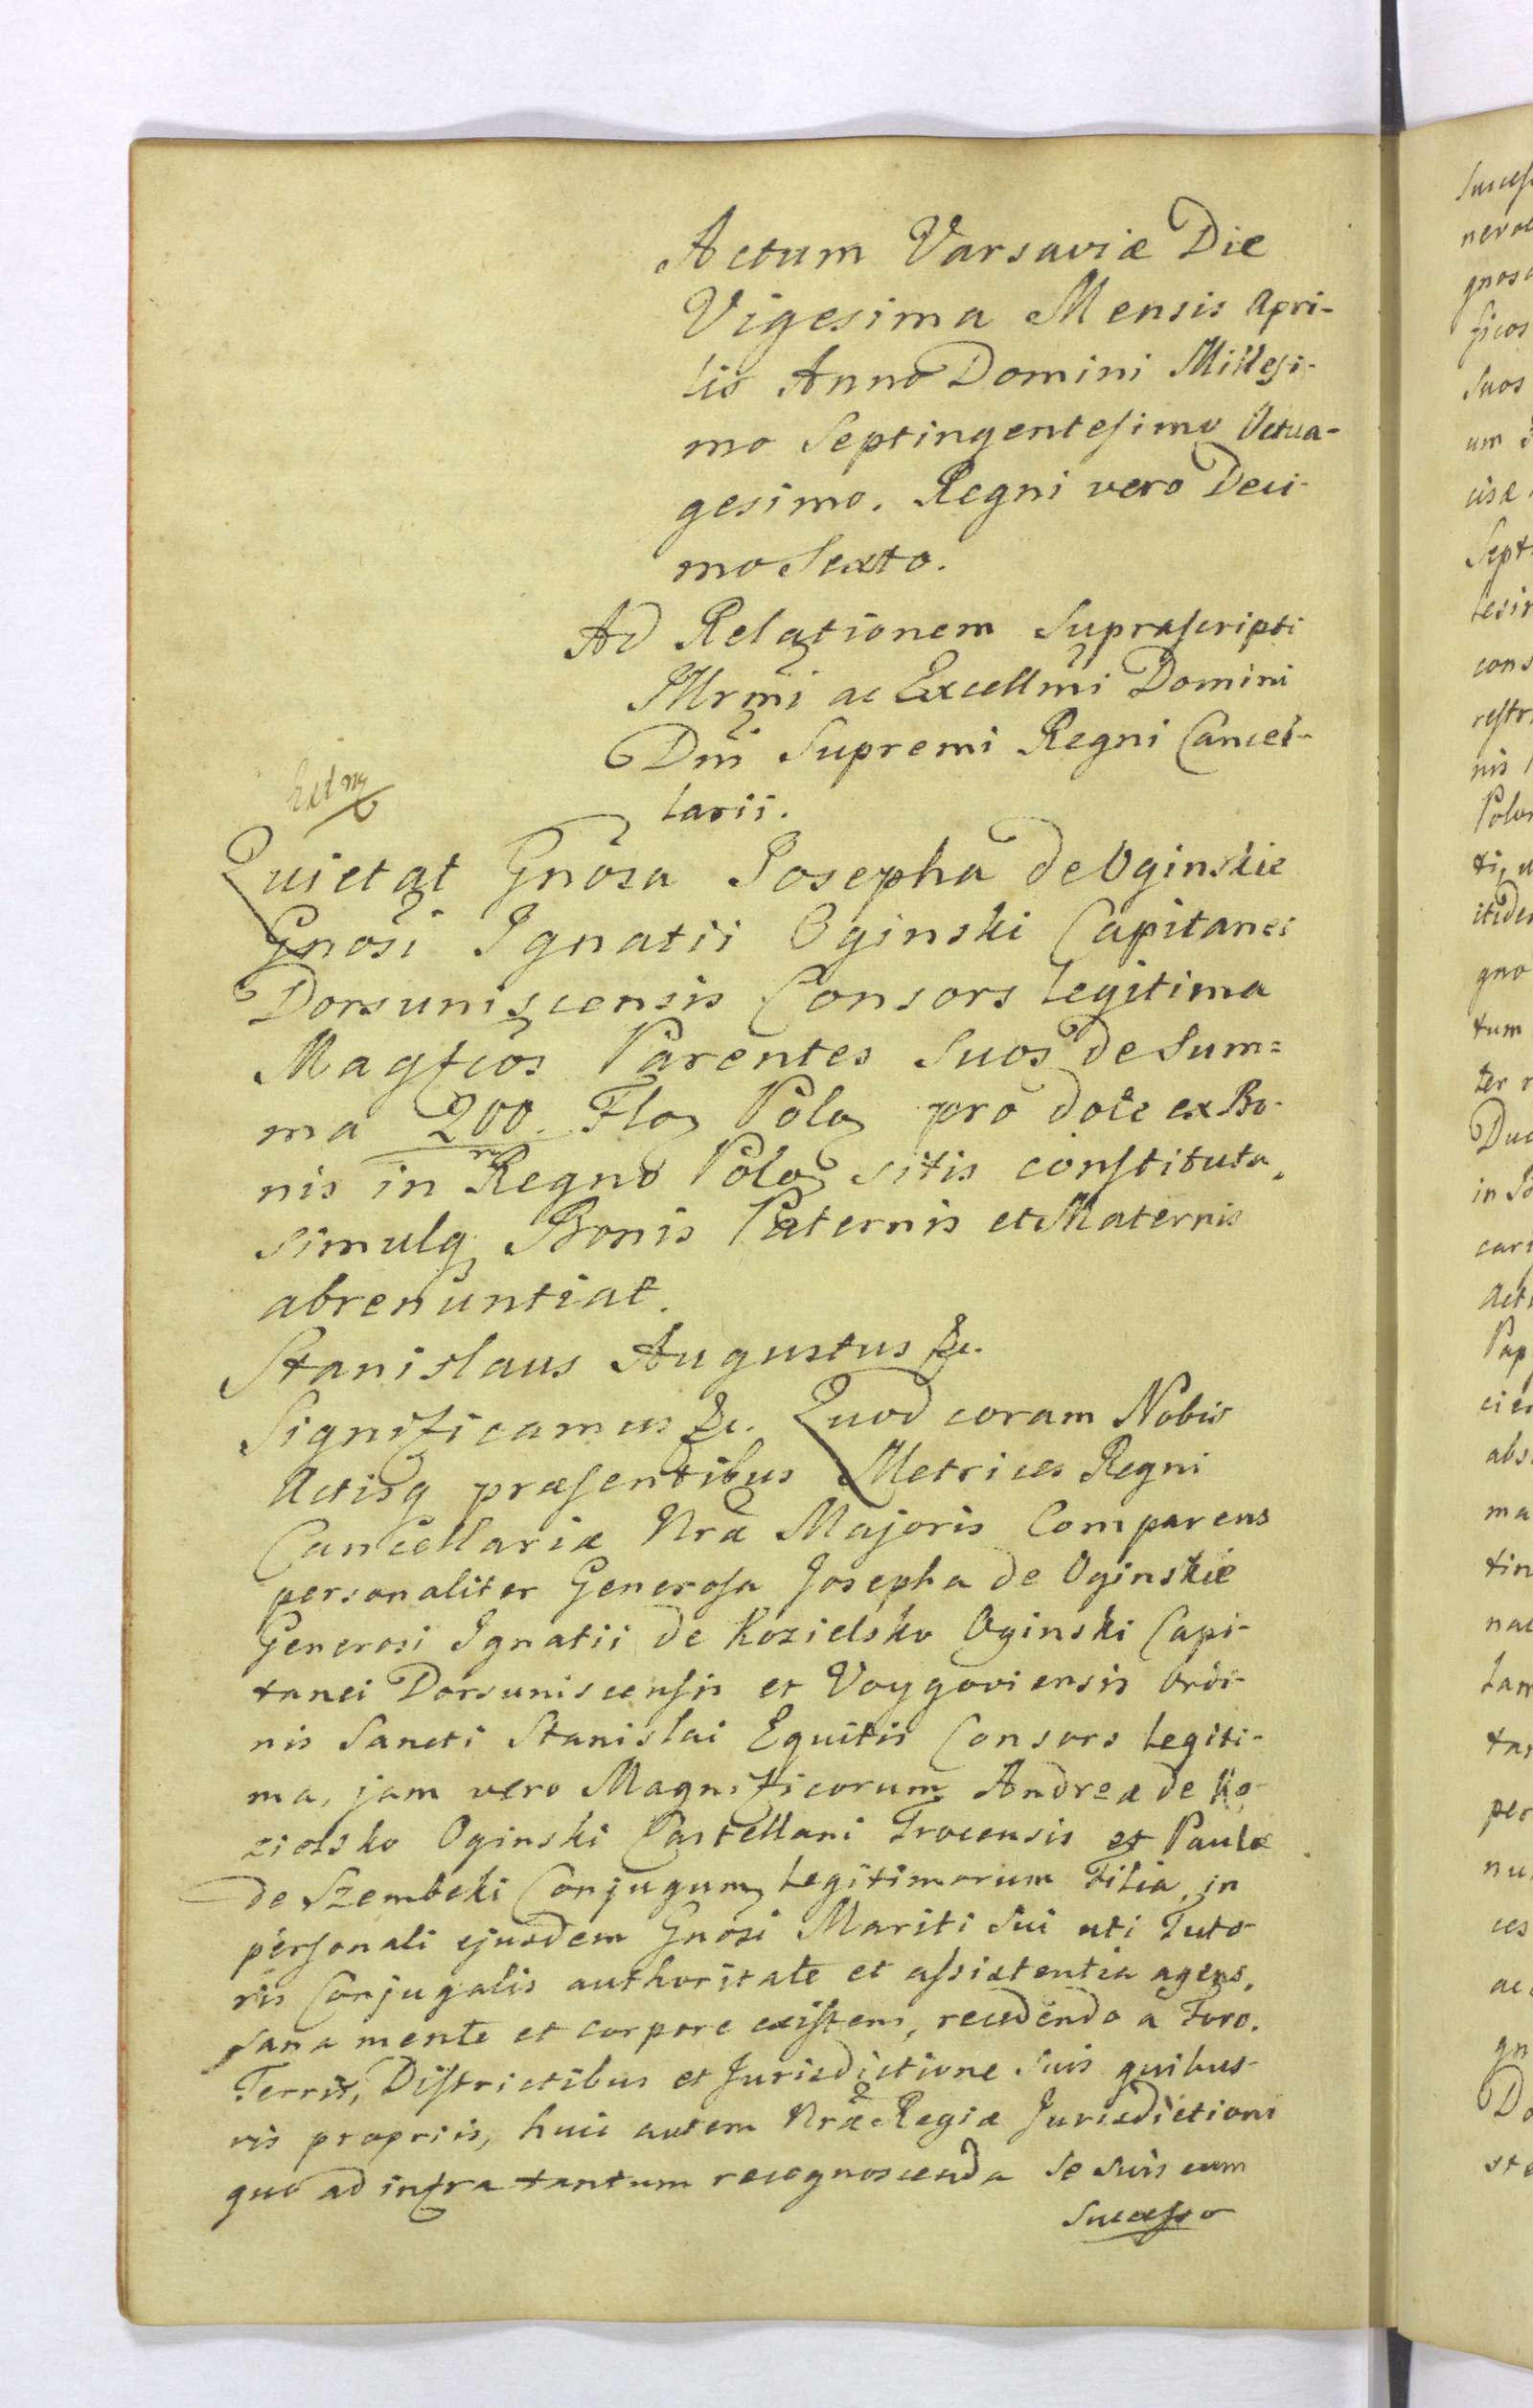 Actum Varsaviæ Die
Vigesima Mensis Apri-
lis Anno Domini Millesi-
mo Septingentesimo Octua-
gesimo. Regni vero Deci-
mo Sexto.
Ad Relationem Suprascripti
Illrmi ac Excellmi Domini
Dni Supremi Regni Cancel-
larii.
Quietat Gnosa Josepha de Oginskie
Gnosi Ignatii Oginski Capitanei
Dorsuniscensis Consors legitima
Magfcos Parentes Suos de Sum=
ma 200. Flo Polo pro dote ex Bo-
m
nis in Regno Polo sitis constituta,
simulq Bonis Paternis et Maternis
abrenuntiat.
Stanislaus Augustus &c.
Significamus &c. Quod coram Nobis
Actisq præsentibus Metrices Regni
Cancellariæ Nræ Majoris Comparens
personaliter Generosa Josepha de Oginskie
Generosi Ignatii de Kozielsko Oginski Capi-
tanei Dorsuniscensis et Voygoviensis Ordi-
nis Sancti Stanislai Equitis Consors legiti-
ma, jam vero Magnificorum Andreæ de Ko-
zielsko Oginski Castellani Trocensis et Paulæ
de Szembeki Conjugum legitimorum Filia, in
personali ejusdem Gnosi Mariti Sui uti Tuto-
ris Conjugalis authoritate et assistentia agens,
sana mente et corpore existens, recedendo a Foro.
Terris, Districtibus et Jurisdictione Suis quibus-
vis propriis, huic autem Nræ Regiæ Jurisdictioni
quo ad infra tantum recognoscenda se suis cum
Successo